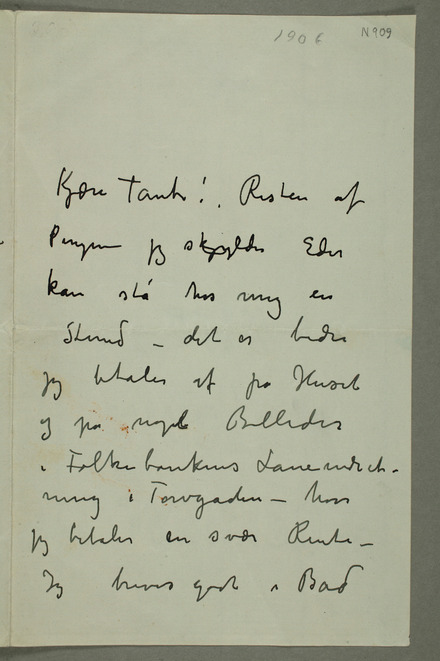 1906 N 909
Kjære Tante! Resten af
Pengene jeg skylder Eder
kan stå hos mig en
Stund – det er bedre
jeg betaler af på Huset
og på nogle Billeder
i Folkebankens Laaneindret-
ning i Torvgaden – hvor
jeg betaler en svær Rente –
Jeg breves godt i Bad